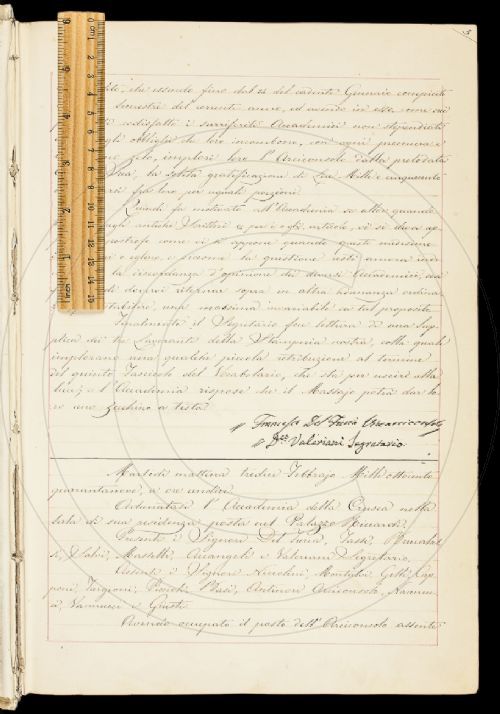 3.
che essendo fino dal dì del cadente Gennaio compiuto
semestre del corrente anno, ed avendo in esso
sodisfatto i surriferiti Accademici non stipendiati
agli obblighi che loro incombono, con ogni premura e
zelo, implori loro l'Arciconsolo dalla prelodata
la solita gratificazione di Lire Mille e cinquecento
fra loro per uguali porzioni.
Quindi fu motivato all'Accademia se allor quando
negli antichi Scrittori e per i o gli articolo, vi si deva ap-
come vi si appone quando queste medesime
e siccome la questione restò ancora inde-
la discordanza d'opinione dei diversi Accademici, così
di doversi sopra in altra adunanza ordina
stabilire una massima invariabile in tal proposito.
Finalmente il Segretario fece lettura di una sup-
plica dei tre Lavoranti della Stamperia nostra, colla quale
implorano una qualche piccola retribuzione al termine
del quinto Fascicolo del Vocabolario, che sta per uscire alla
luce; e l'Accademia rispose che il Massajo potrà dar lo-
ro uno zecchino a testa
Francesco Del Furia
Valeriani Segretario.
Martedì mattina tredici Febbrajo Mille ottocento
quarantanove, a ore undici.
Adunatasi l'Accademia della Crusca nella
sala di sua residenza posta nel Palazzo Riccardi;
Presenti i Signori Del Furia, Tassi,
Masselli, Arcangeli e Valeriani Segretario.
Assenti i Signori Niccolini, Montalvi, Gelli, Cap-
poni, Targioni, Antinori Arciconsolo,
Vannucci e Giusti.
Avendo occupato il posto dell'Arciconsolo assente